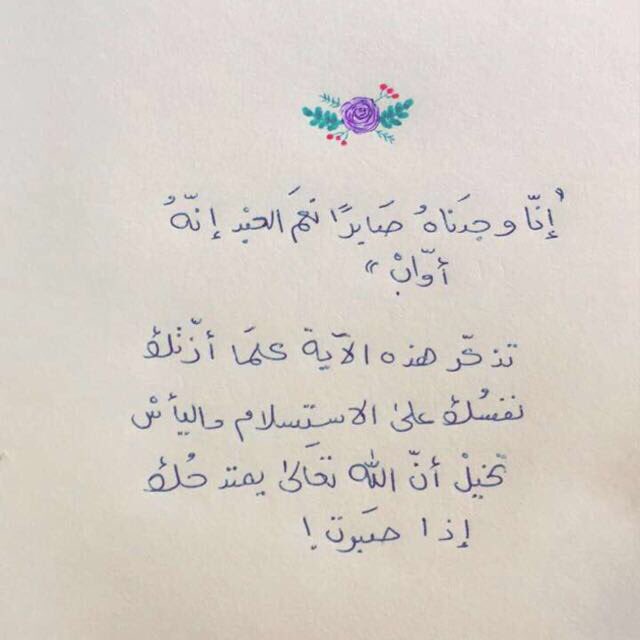 "إنّا وجدَناهُ صَابرًا نعمَ العبْد إنّهُ
أوّابْ"
تذكّر هذه الآية كلمَا أزّتك
نفسُك على الاستسلام واليأسْ
تخيلْ أنّ الله تعَالى يمتدحُك
إذا صبَرت !